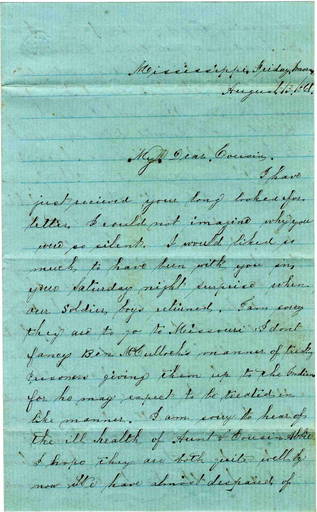 Mississippi, Friday
August
My Dear Cousin,
I have
just recieved your long looked for
letter. I could not imagine why you
were so silent. I would liked so
much, to have been with you in
your Saturday night surprise when
our Soldier boys returned. I am sorry
they are to go to Missouri. I dont
fancy Ben McCulloch's manner of
prisoners giving them up to the Indians
for he may expect to be treated in
like manner. I am sorry to hear of
the ill health of Aunt & Cousin
I hope they are both quite well by
now. We have almost despared of